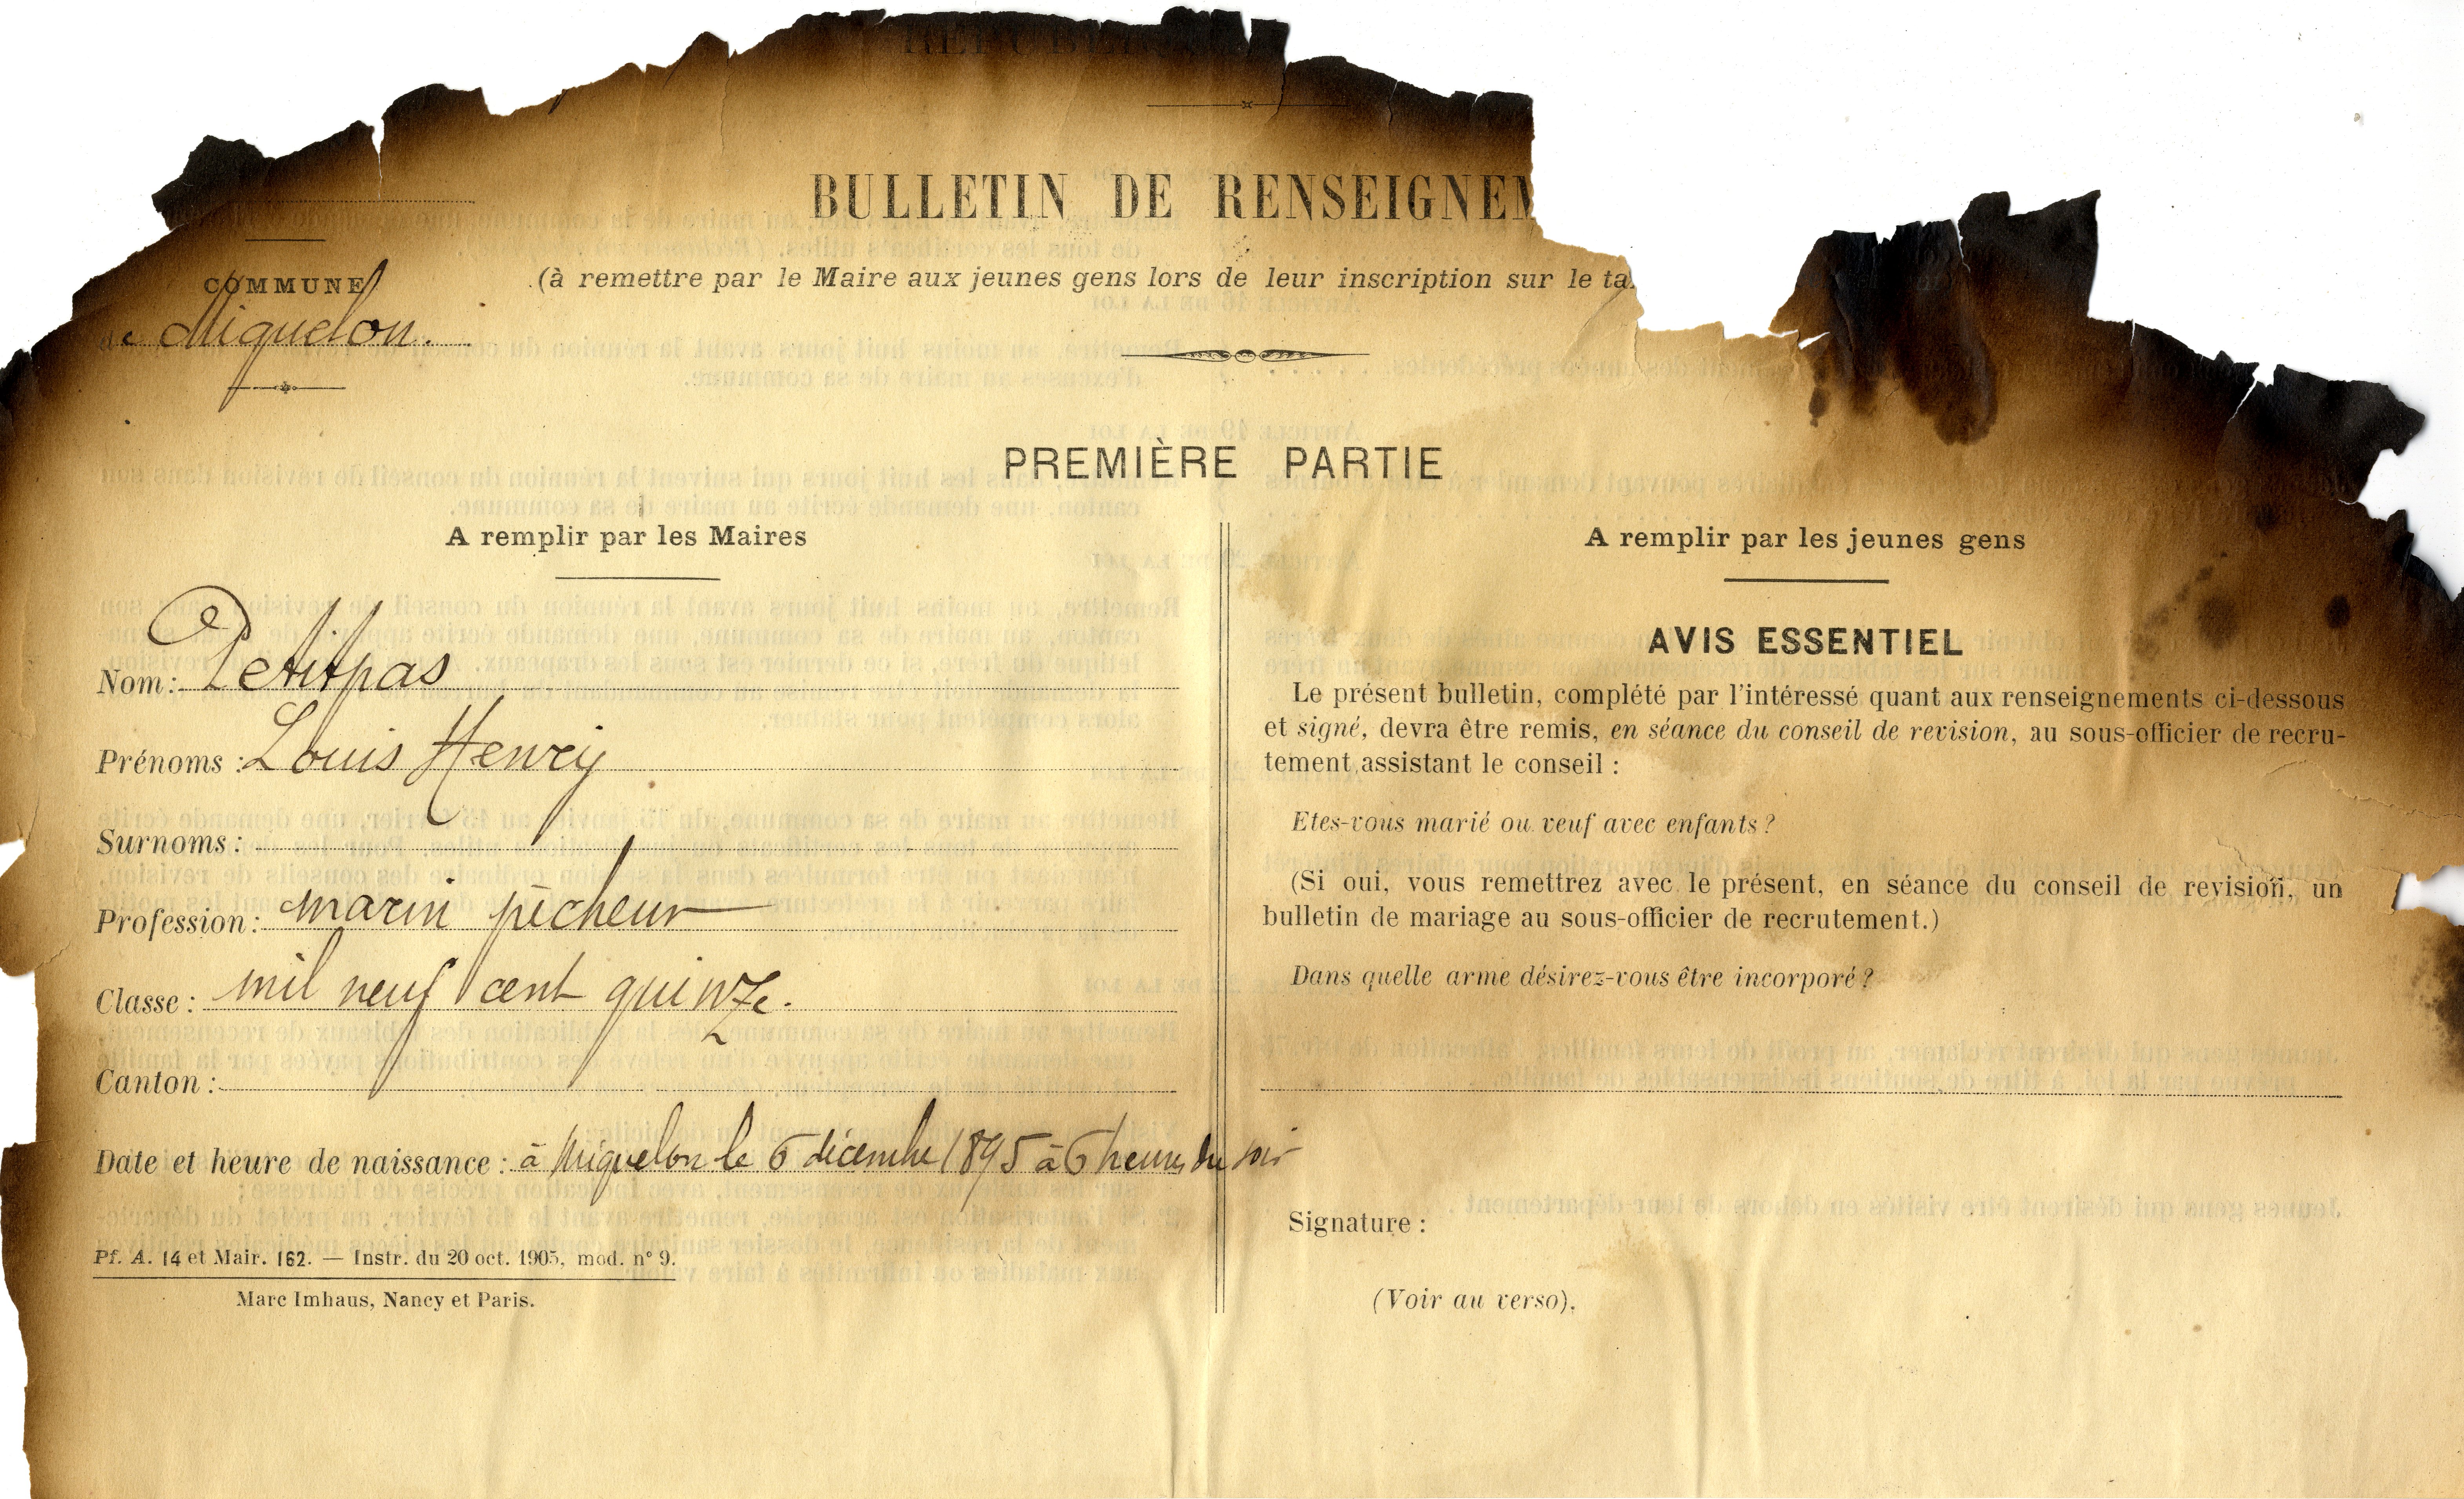 BULLETIN DE RENSEIGNEM
COMMUNE
(à remettre par le Maire aux jeunes gens lors de leur inscription sur le ta
de Miquelon.
PREMIÈRE PARTIE
A remplir par les Maires
Nom: Petitpas
Prénoms: Louis Henry
Surnoms:
Profession: marin pêcheur
Classe: mil neuf cent quinze.
Canton:
Date et heure de naissance: à Miquelon le 6 décembre 1895 à 6 heures du soir
Pf. A. 14 et Mair. 162. — Instr. du 20 oct. 1905, mod. n° 9.
Marc Imhaus, Nancy et Paris.
A remplir par les jeunes gens
AVIS ESSENTIEL
Le présent bulletin, complété par l'intéressé quant aux renseignements ci-dessous
et signé, devra être remis, en séance du conseil de revision, au sous-officier de recru-
tement assistant le conseil :
Etes-vous marié ou veuf avec enfants?
(Si oui, vous remettrez avec le présent, en séance du conseil de revision, un
bulletin de mariage au sous-officier de recrutement.)
Dans quelle arme désirez-vous être incorporé?
Signature :
(Voir au verso).